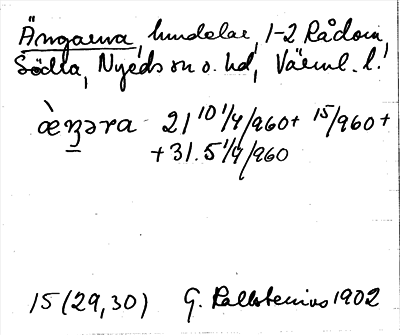 Ängarna, hmdelar, 1-2 Rådom,
Södra, Nyeds sn o. hd, Värml. l.
æ̀ŋəra 21 10 1/4/960 + 15/960 +
+ 31.5 1/4/960
15 (29,30) G. Kallstenius 1902